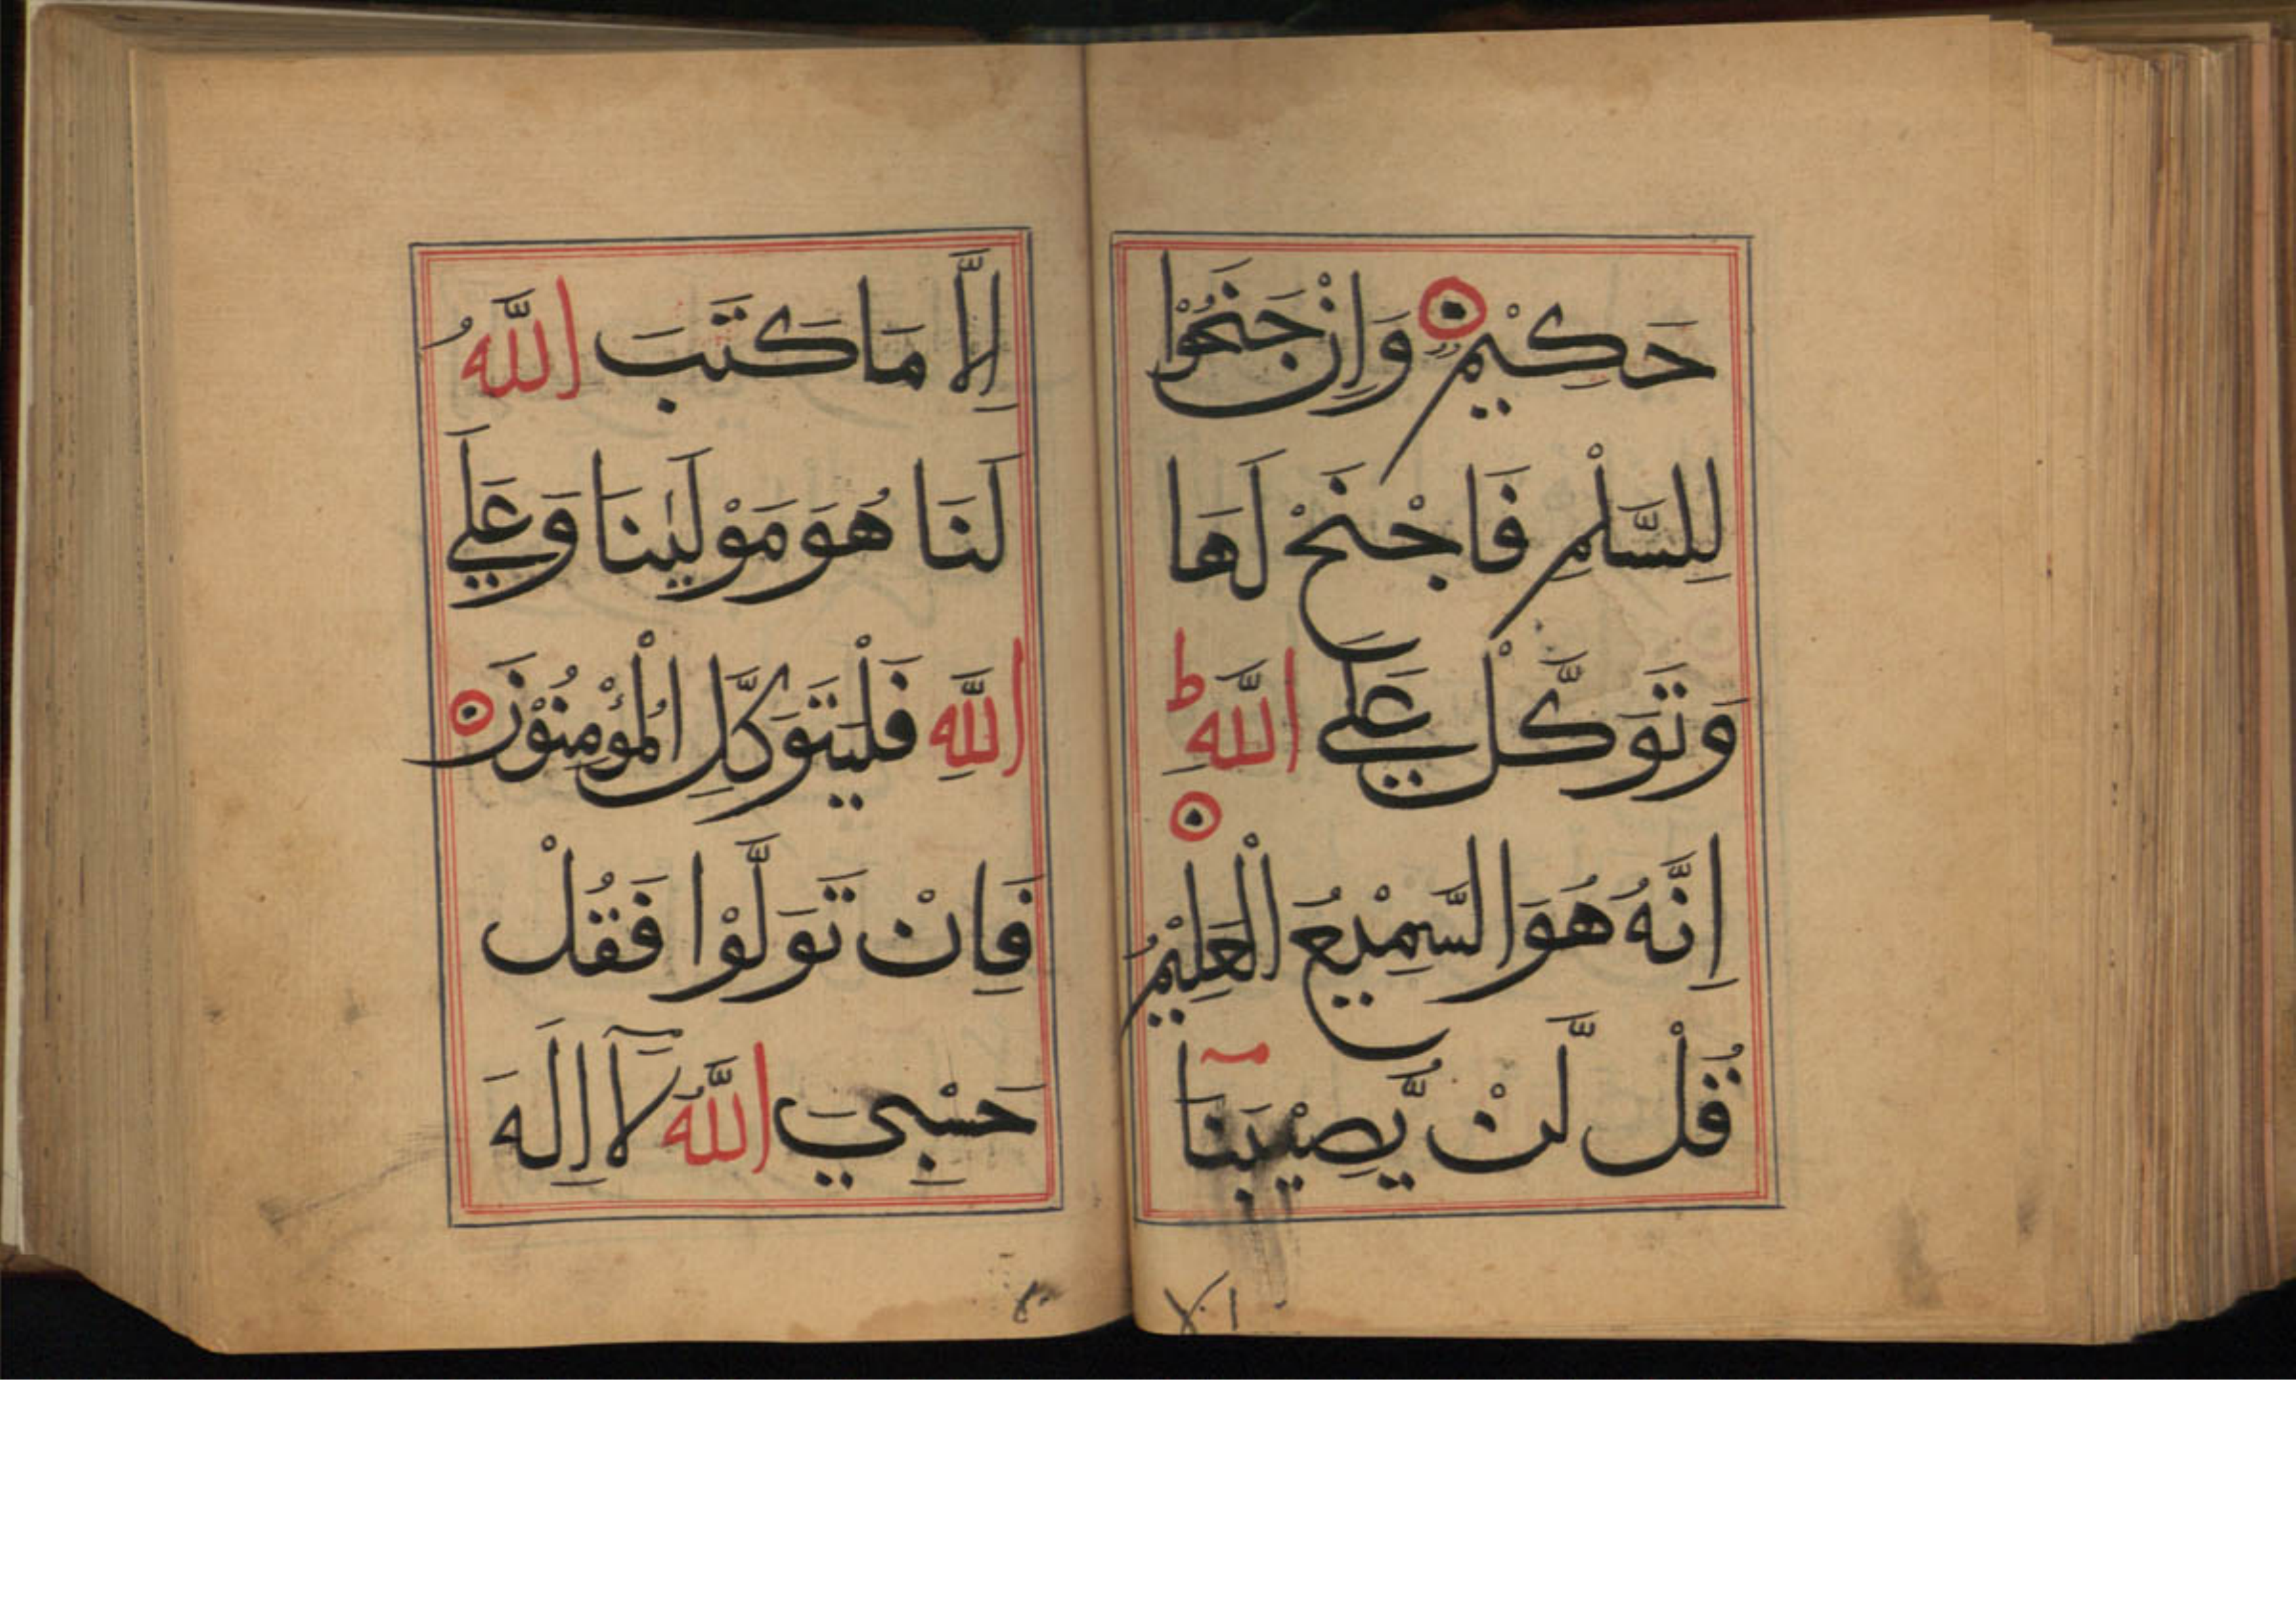 حَكِيْمٌ وَاِنْ جَنَحُوْا
لِلسَّلْمِ فَاجْنَحْ لَهَا
وَتَوَكَّلْ عَلَي اللَّهِ ط
اِنَّهُ هُوَ السَّمِيْعُ الْعَلِيْمُ
قُلْ لَّنْ يُّصِيْبَنَا
اِلَّا مَا كَتَبَ اللَّهُ
لَنَا هُوَ مَوْلَيٰنَا وَعَلَي
اللَّهِ فَلْيَتَوَكَّلِ الْمُؤْمِنُوْنَ
فَاِنْ تَوَلَّوْا فَقُلْ
حَسْبِيَ اللَّهُ لَآ اِلَهَ